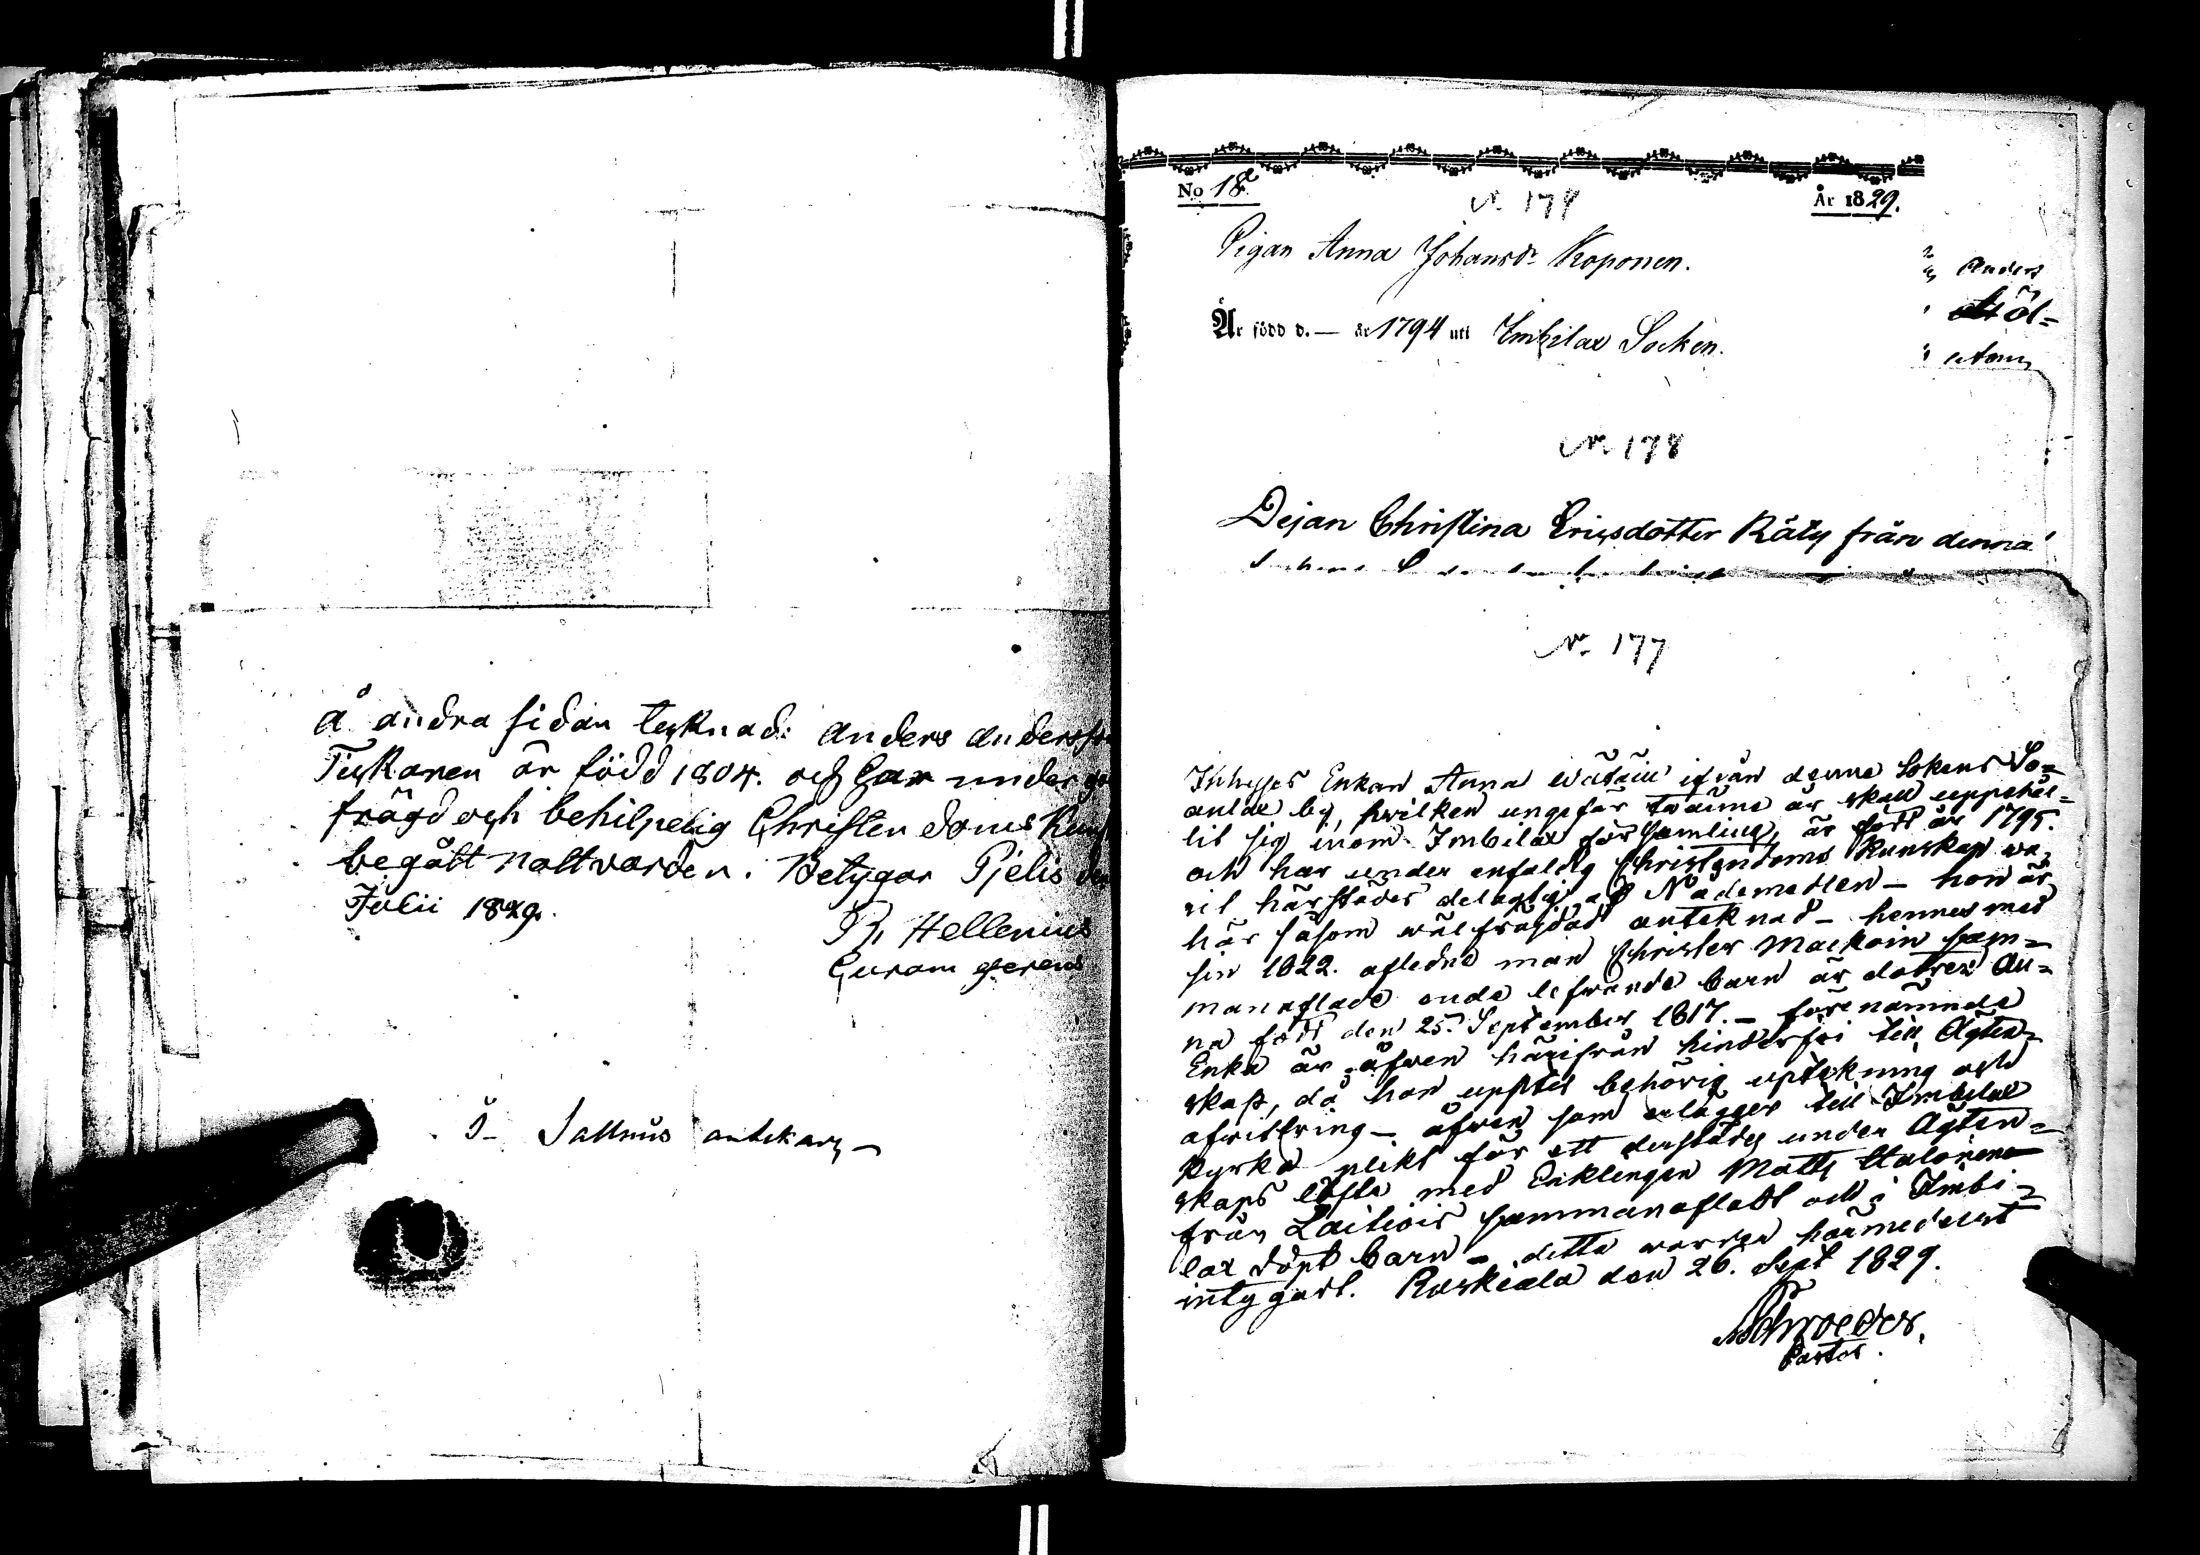 å andra sidan teknad: Anders Anders
Tiikanen är född 1804. och har under
frägd och behilpelig Christendoms
begått nattvarden. Betygar Pjelis
Julii 1829.
Hellenius
Curam gerens
No 18
N. 179
År 1829.
Pigan Anna Johansdr Koponen.
Anders
Är född d. — år 1794 uti Imbilax Socken.
N. 178
Dejan Christina Ericsdotter Räty från denna
N. 177
Inhyses Enkan Anna ifrån denne Sokens So-
anlax by, hwilken ungefär år skall uppehål-
lit sig inom Imbilax församling, är född år 1795.
och har under enfaldig Christendoms Kunskap wa-
rit härstädes delagtig af Nådemedlen — hon är
här såsom wälfrägdad anteknad — hennes med
sin 1822. aflidne man Christer sam-
manaflade enda lefwande barn är dotren An-
na född den 25. September 1817. — förenämnde
Enka är äfwen härifrån hinderfri till Ägten-
skap, då hon behörig uptekning och
— äfwen som aflägger till Imbilax
Kyrka plikt för ett derstädes under Ägten-
skaps löfte med Enklingen Matts
från sammanafladt och i Imbi-
lax döpt barn — detta warder härmedelst
intygadt. Ruskeala den 26. Sept 1829.
Schroeder.
Pastor.